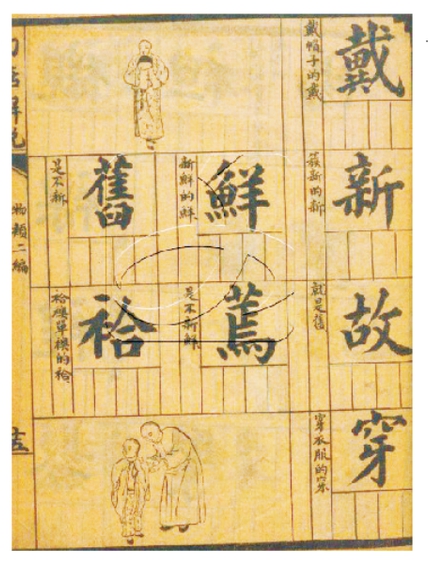 戴
戴帽子的戴
新
簇新的新
故
就是舊
穿
穿衣服的穿
鮮
新鮮的鮮
蔫
是不新鮮
舊
是不新
袷
物類二編